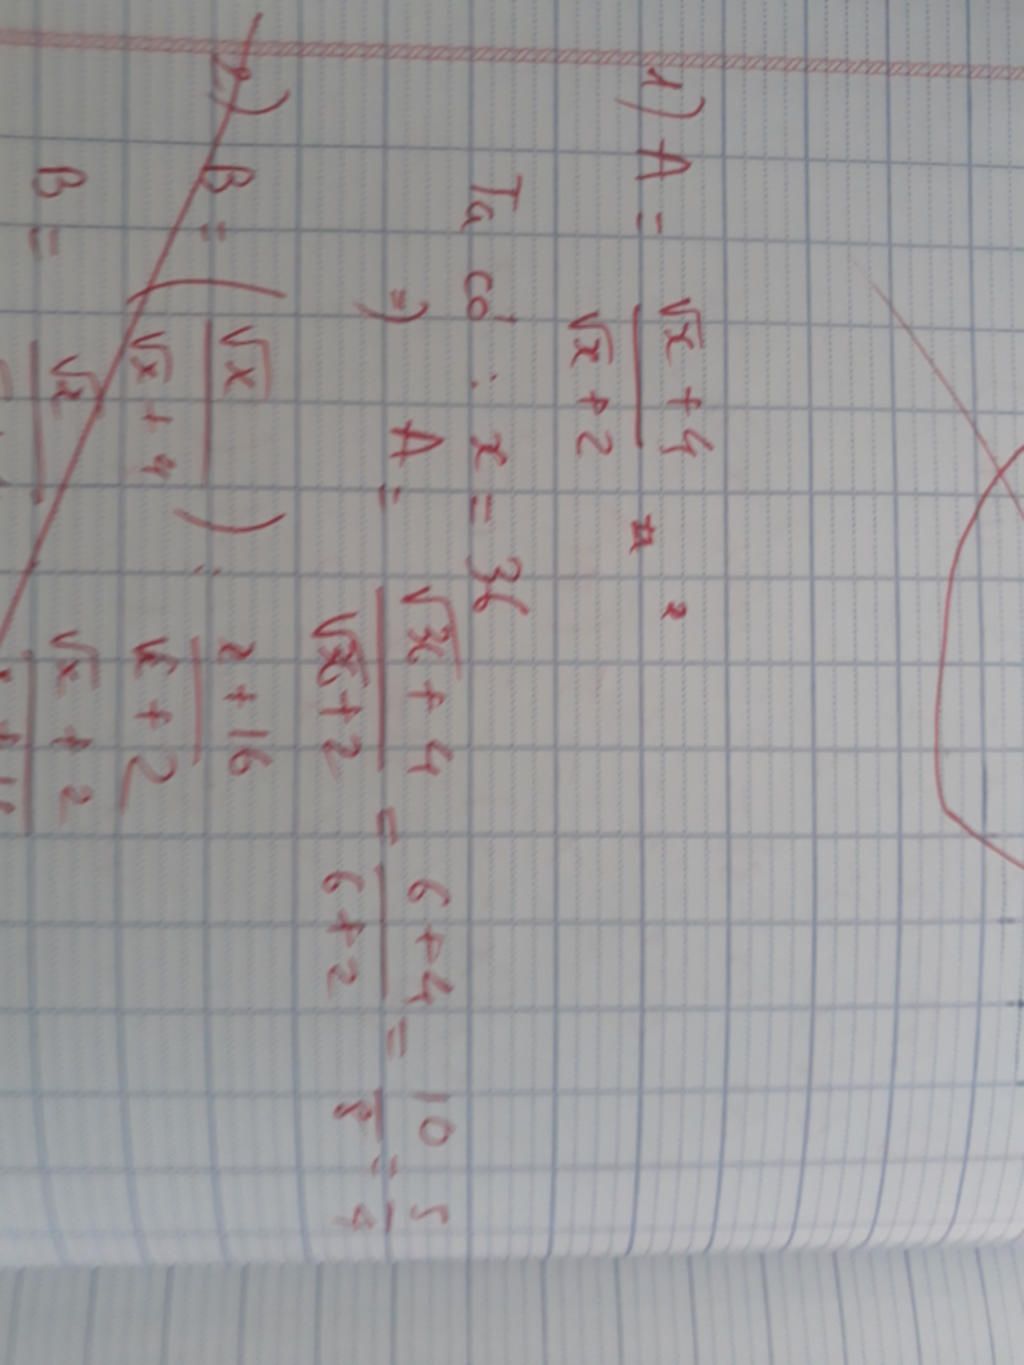 1) A = (√x + 4)/(√x + 2)
Ta có : x = 36
=> A = (√36 + 4)/(√36 + 2) = (6 + 4)/(6 + 2) = 10/8 = 5/4
2) B = (√x/(√x + 4) ) : (x + 16)/(√x + 2)
B = √x √x + 2